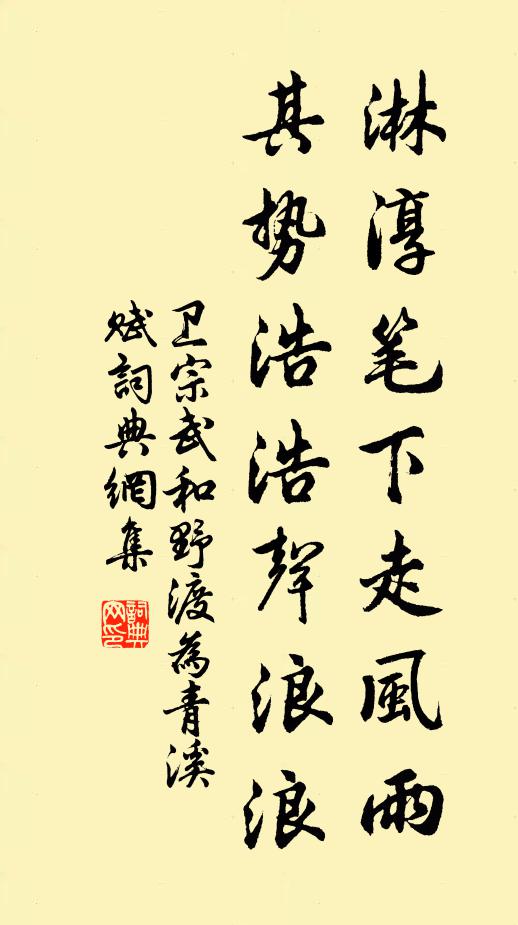 淋淳笔下走風雨
其势浩浩聲浪浪
卫宗武和野渡為青溪
赋詞典網集
詞典网印